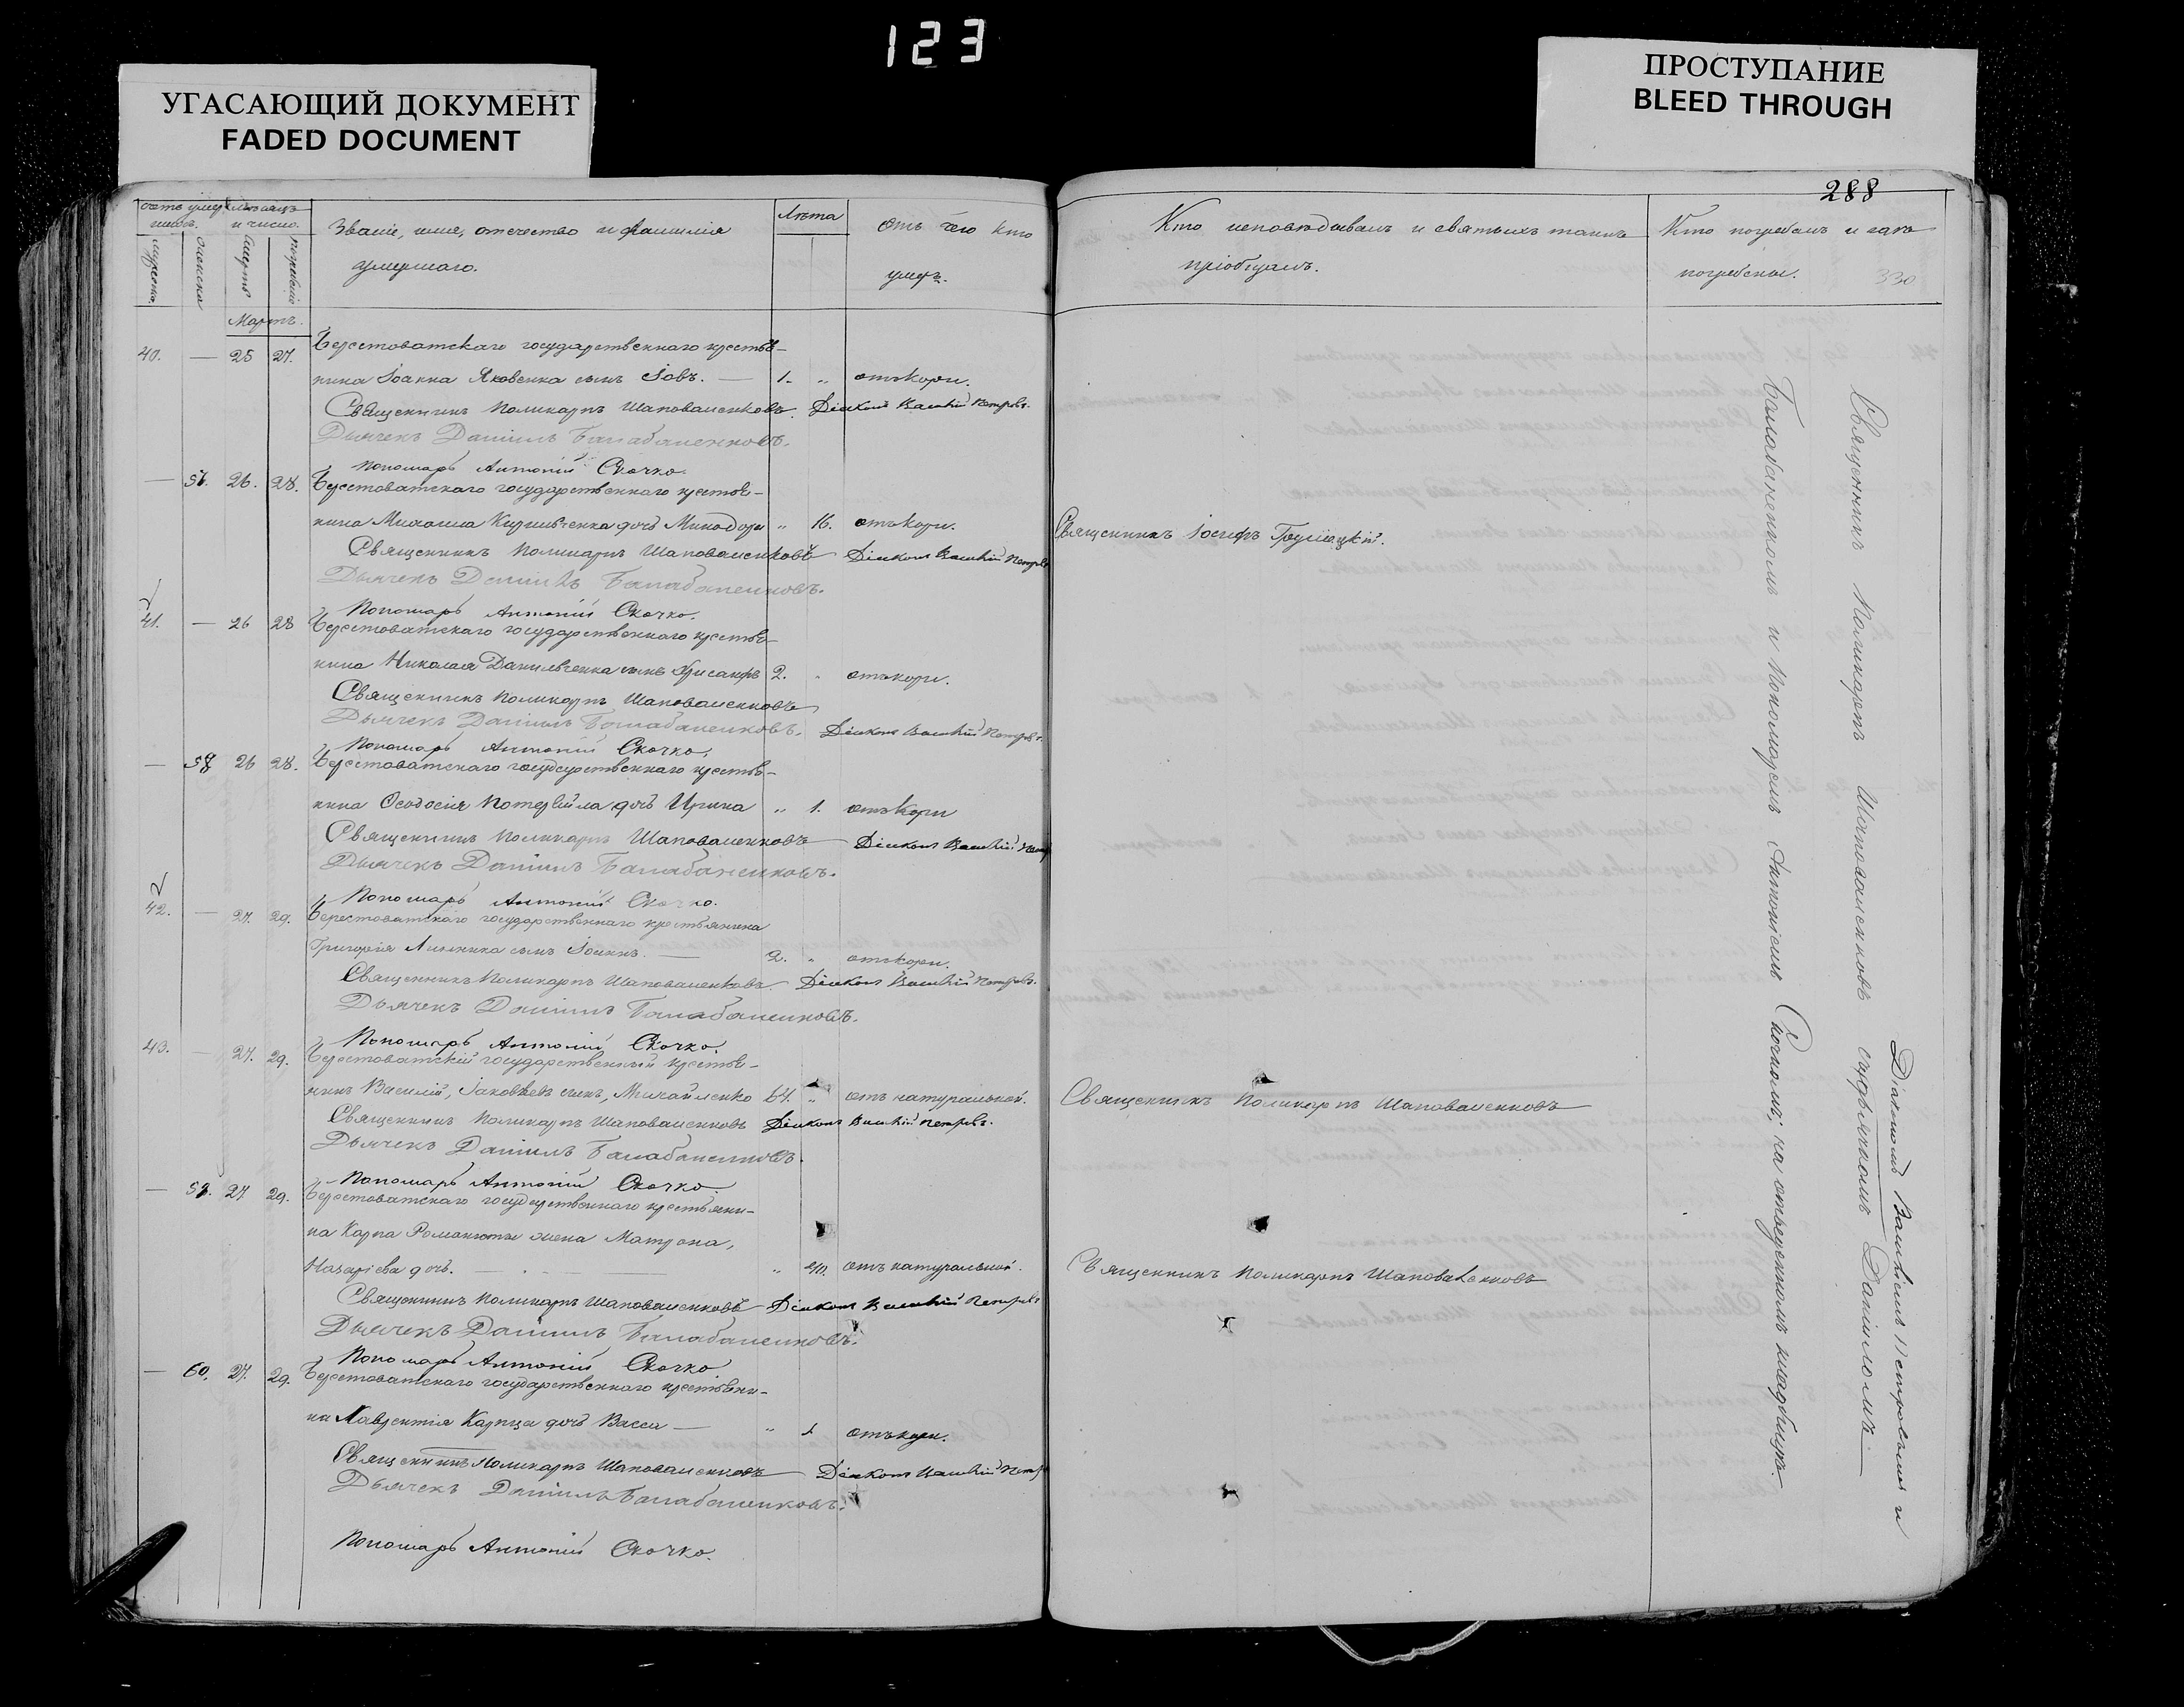 123
УГАСАЮЩИЙ ДОКУМЕНТ
FADED DOCUMENT
ПРОСТУПАНИЕ
BLEED THROUGH
288
330
Званіе, имя, отечество и фамилія
умершаго.
Лѣта
Отъ чего кто
умеръ.
Кто исповѣдывалъ и святыхъ таинъ
пріобщалъ.
Кто погребалъ и гдѣ
погребены.
Мартъ.
40. — 25 27. Берестоватскаго государственнаго крестья-
нина Іоанна Яковенка сынъ Іовъ. — 1. „ отъ кори.
Священникъ Поликарпъ Шаповаленковъ. Діаконъ Василій Петровъ.
Дьячекъ Даніилъ Балабаненковъ.
Пономарь Антоній Скочко.
— 57. 26. 28. Берестоватскаго государственнаго крестья-
нина Михаила Кириченка дочь Минодора „ 16. отъ кори. Священникъ Іосифъ
Священникъ Поликарпъ Шаповаленковъ Діаконъ Василій Петровъ
Дьячекъ Даніилъ Балабаненковъ.
Пономарь Антоній Скочко.
41. — 26 28 Берестоватскаго государственнаго крестья-
нина Николая Данильченка сынъ Хрисанфъ 2. „ отъ кори.
Священникъ Поликарпъ Шаповаленковъ
Дьячекъ Даніилъ Балабаненковъ. Діаконъ Василій Петровъ.
Пономарь Антоній Скочко.
— 58 26 28. Берестоватскаго государственнаго крестья-
нина Ѳеодосія дочь Ирина „ 1. отъ кори
Священникъ Поликарпъ Шаповаленковъ Діаконъ Василій
Дьячекъ Даніилъ Балабаненковъ.
Пономарь Антоній Скочко.
42. — 27. 29. Берестоватскаго государственнаго крестьянина
Григорія Линника сынъ Іоаннъ. — 2. „ отъ кори.
Священникъ Поликарпъ Шаповаленковъ. Діаконъ Василій Петровъ.
Дьячекъ Даніилъ Балабаненковъ.
Пономарь Антоній Скочко.
43. — 27. 29. Берестоватскій государственный крестья-
нинъ Василій, Іаковлевъ сынъ, Михайленко 64. „ отъ натуральной. Священникъ Поликарпъ Шаповаленковъ
Священникъ Поликарпъ Шаповаленковъ Діаконъ Василій Петровъ.
Дьячекъ Даніилъ Балабаненковъ.
Пономарь Антоній Скочко.
— 59. 27 29. Берестоватскаго государственнаго крестьяни-
на Карпа Романюты жена Матрона,
Назаріева дочь. — „ 40. отъ натуральной. Священникъ Поликарпъ Шаповаленковъ
Священникъ Поликарпъ Шаповаленковъ Діаконъ Василій Петровъ
Дьячекъ Даніилъ Балабаненковъ.
Пономарь Антоній Скочко.
— 60. 27. 29. Берестоватскаго государственнаго крестьяни-
на Лаврентія Карпца дочь Васса — „ 1 отъ кори.
Священникъ Поликарпъ Шаповаленковъ Діаконъ Василій
Дьячекъ Даніилъ Балабаненковъ.
Пономарь Антоній Скочко.
Священникъ Поликарпъ Шаповаленковъ съ Діакономъ Василіемъ Петровымъ и
Даніиломъ
Балабаненкомъ и Пономаремъ Антоніемъ Скочкомъ; на отведенномъ кладбищѣ.